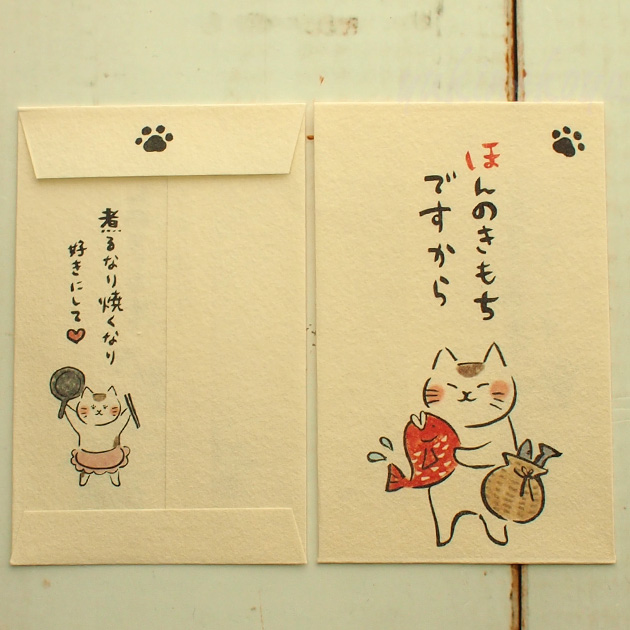 煮るなり焼くなり
好きにして♥
ほんのきもち
ですから